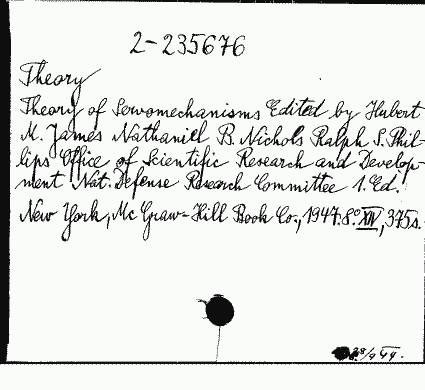 2-235676
Theory
Theory of Servomechanisms Edited by Hubert
M. James Nathaniel B. Nichols Ralph S. Phil-
lips Office of Scientific Research and Develop-
ment Nat. Defense Research Committee 1. Ed.
New York, Mc Graw-Hill Book Co., 1947. 8° XIV, 375 s.
28/9 49.